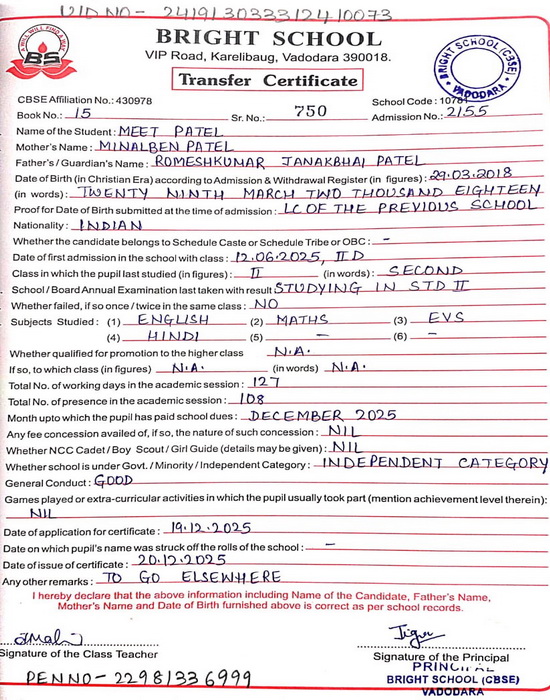 UID NO- 241913033312410073
A BULL WILL FIND A WAY
BS
BRIGHT SCHOOL
VIP Road, Karelibaug, Vadodara 390018.
Transfer Certificate
BRIGHT SCHOOL (CBSE)
VADODARA
CBSE Affiliation No.: 430978
School Code : 10781
Book No.: 15 Sr. No.: 750 Admission No.: 2155
Name of the Student : MEET PATEL
Mother's Name : MINALBEN PATEL
Father's / Guardian's Name : ROMESHKUNAR JANAKBHAI PATEL
Date of Birth (in Christian Era) according to Admission & Withdrawal Register (in figures) : 29.03.2018
(in words) : TWENTY NINTH MARCH TWO THOUSAND EIGHTEEN
Proof for Date of Birth submitted at the time of admission : LC OF THE PREVIOUS SCHOOL
Nationality : INDIAN
Whether the candidate belongs to Schedule Caste or Schedule Tribe or OBC : -
Date of first admission in the school with class : 12.06.2025, II D
Class in which the pupil last studied (in figures) : II (in words) : SECOND
School / Board Annual Examination last taken with result STUDYING IN STD II
Whether failed, if so once / twice in the same class : NO
Subjects Studied : (1) ENGLISH (2) MATHS (3) EVS
(4) HINDI (5) - (6) -
Whether qualified for promotion to the higher class N.A.
If so, to which class (in figures) N.A. (in words) N.A.
Total No. of working days in the academic session : 127
Total No. of presence in the academic session : 108
Month upto which the pupil has paid school dues : DECEMBER 2025
Any fee concession availed of, if so, the nature of such concession : NIL
Whether NCC Cadet / Boy Scout / Girl Guide (details may be given) : NIL
Whether school is under Govt. / Minority / Independent Category : INDEPENDENT CATEGORY
General Conduct : GOOD
Games played or extra-curricular activities in which the pupil usually took part (mention achievement level therein):
NIL
Date of application for certificate : 19.12.2025
Date on which pupil's name was struck off the rolls of the school : -
Date of issue of certificate : 20.12.2025
Any other remarks : TO GO ELSEWHERE
I hereby declare that the above information including Name of the Candidate, Father's Name,
Mother's Name and Date of Birth furnished above is correct as per school records.
Signature of the Class Teacher
Signature of the Principal
PRINCIPAL
BRIGHT SCHOOL (CBSE)
VADODARA
PEN NO- 22981336999